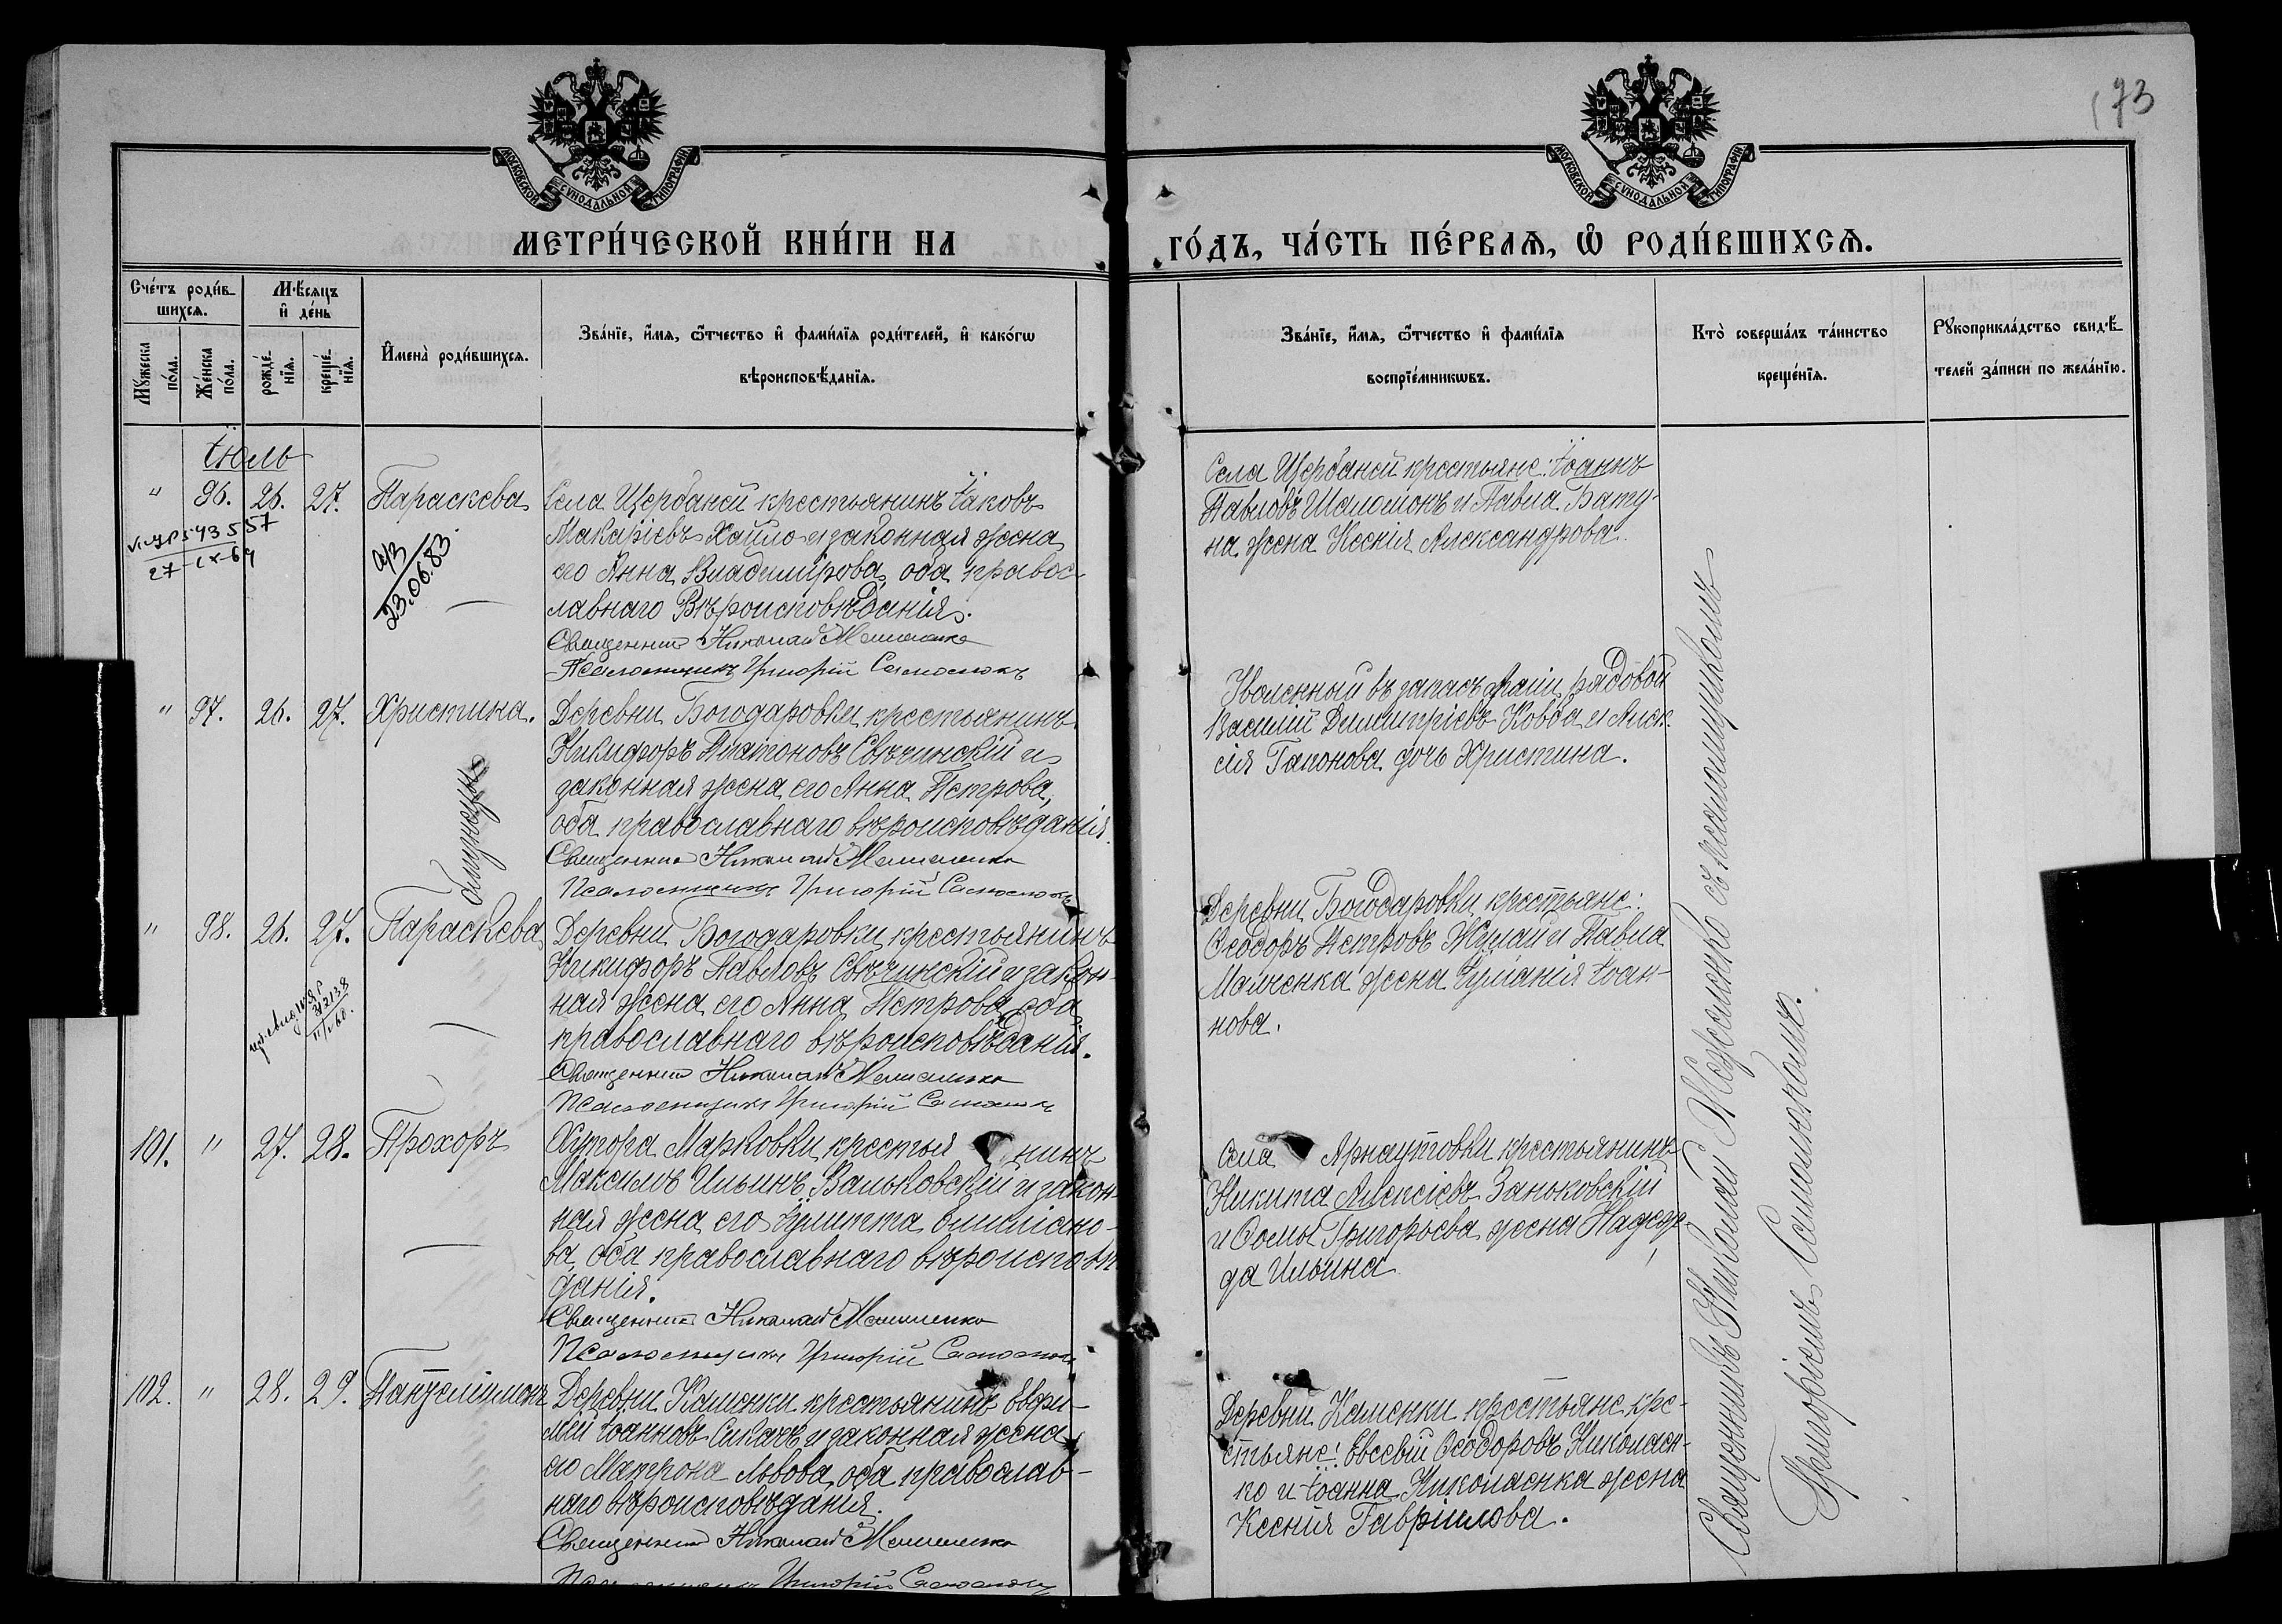 73
МОСКОВСКОЙ СУНОДАЛЬНОЙ ТИПОГРАФІИ
МОСКОВСКОЙ СУНОДАЛЬНОЙ ТИПОГРАФІИ
МЕТРИ́ЧЕСКОЙ КНИ́ГИ НА
ГО́ДЪ, ЧА́СТЬ ПЕ́РВАѦ, Ѡ҆ РОДИ́ВШИХСѦ.
Сче́тъ роди́в-
шихсѧ.
Мꙋжеска по́ла.
Же́нска по́ла.
Мѣ́сѧцъ
и҆ де́нь
рожде́-
нїѧ.
креще́-
нїѧ.
И҆мена̀ роди́вшихсѧ.
Зва́нїе, и҆́мѧ, ѻ҆́тчество и҆ фами́лїѧ роди́телей, и҆ како́гѡ
вѣроисповѣ́данїѧ.
Зва́нїе, и҆́мѧ, ѻ҆́тчество и҆ фами́лїѧ
воспрїе́мникѡвъ.
Кто̀ соверша́лъ та́инство
креще́нїѧ.
Рꙋкоприкла́дство свидѣ́-
телей за́писи по жела́нїю.
Іюль
" 96. 26. 27. Параскева
Села Щербаней крестьянинъ Іаковъ
Макаріевъ Хайло и законная жена
его Анна Владимірова, оба правос-
лавнаго Вѣроисповѣданія.
Священникъ Николай
Псаломщикъ Григорій Самослюкъ
27-IX-69
а/з
23.06.83.
Села Щербаней крестьяне: Іоаннъ
Павловъ Шаломонъ и Павла Бату-
на жена Ксенія Александрова.
" 97. 26. 27. Христина.
Деревни Богодаровки крестьянинъ
Никифоръ Платоновъ Свѣчинскій и
законная жена его Анна Петрова,
оба православнаго вѣроисповѣданія.
Священникъ Николай
Псаломщикъ Григорій Самослюкъ
близнецы
Уволенный въ запасъ арміи рядовой
Василій Димитріевъ Ковба и Алек-
сія Гапонова дочь Христина.
" 98. 26. 27. Параскева
Деревни Богодаровки крестьянинъ
Никифоръ Павловъ Свѣчинскій и закон-
ная жена его Анна Петрова, оба
православнаго вѣроисповѣданія.
Священникъ Николай
Псаломщикъ Григорій
Деревни Богодаровки крестьяне:
Ѳеодоръ Петровъ Жумай и Павла
Мамченка жена Іуліанія Іоан-
нова.
101. " 27. 28. Прохоръ
Хутора Марковки крестья нинъ
Максимъ Ильинъ Ваньковскій и закон-
ная жена его Іулитта
ва, оба православнаго вѣроисповѣ-
данія.
Священникъ Николай
Псаломщикъ Григорій
Села Арнаутовки крестьянинъ
Никита Алексіевъ Заньковскій
и Ѳомы Григорьева жена Надеж-
да Ильина
102. " 28. 29. Пантелеимонъ
Деревни Каменки крестьянинъ Евфи-
мій Іоанновъ Сикачъ и законная жена
его Матрона Львова, оба православ-
наго вѣроисповѣданія.
Священникъ Николай
Григорій
Деревни Каменки крестьяне кре-
стьяне: Евсевій Ѳеодоровъ Николаен-
ко и Іоанна Николаенка жена
Ксенія Гавріилова.
Священникъ Николай съ псаломщикомъ
Григоріемъ Самослюкомъ.